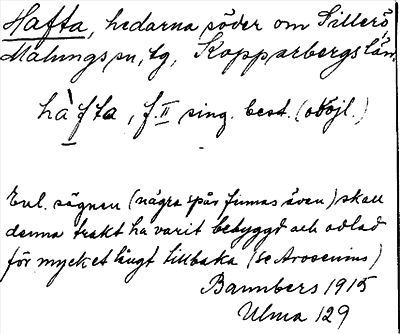 Hafta, hedarna söder om Sillerö,
Malungs sn, tg, Kopparbergs län.
hàfta, f. II sing. best. (oböjl.)
Enl. sägnen (några spår finnas även) skall
denna trakt ha varit bebyggd och odlad
för mycket långt tillbaka (se Arosenius)
Bannbers 1915
Ulma 129